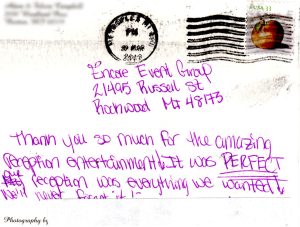 PM
USA 33
Encore Event Group
21495 Russel St
Rockwood MI 48173
Thank you so much for the amazing
reception entertainment! It was PERFECT
reception was everything we wanted!
We'll never forget it!
Photography by